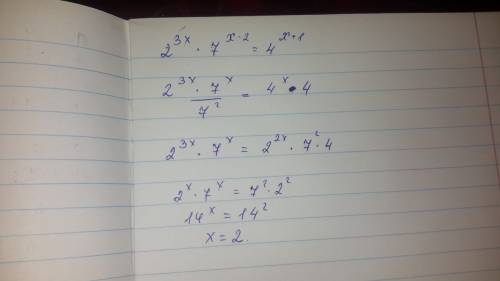 2^{3x} · 7^{x-2} = 4^{x+1}
\frac{2^{3x} · 7^x}{7^2} = 4^x · 4
2^{3x} · 7^x = 2^{2x} · 7^2 · 4
2^x · 7^x = 7^2 · 2^2
14^x = 14^2
x = 2.